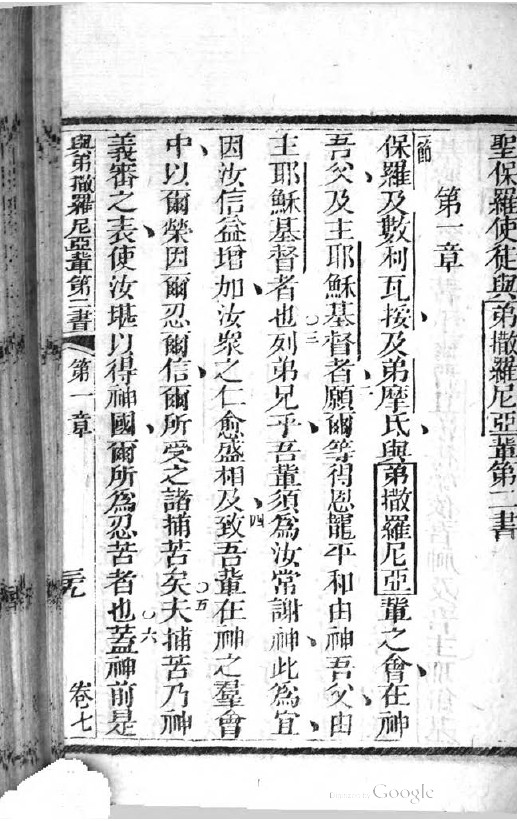 聖保羅使徒與弟撒羅尼亞輩第二書
第一章
一節
保羅及數利瓦按及弟摩氏與弟撒羅尼亞輩之會在神
吾父及主耶穌基督者二願爾等得恩寵平和由神吾父由
主耶穌基督者也三列弟兄乎吾輩須為汝常謝神此為宜
因汝信益增加汝眾之仁愈盛相及致四吾輩在神之羣會
中以爾榮因爾忍爾信爾所受之諸捕苦矣五夫捕苦乃神
義審之表使汝堪以得神國爾所為忍苦者也六蓋神前是
與弟撒羅尼亞輩第二書 第一章 三九 卷七
Digitized by Google